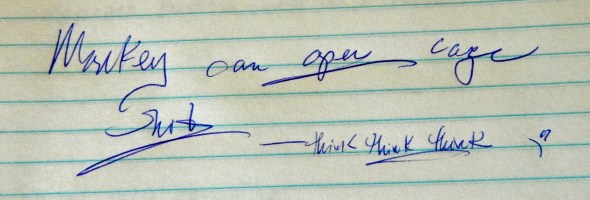 Monkey can open cage
Shit
— think think think ;"